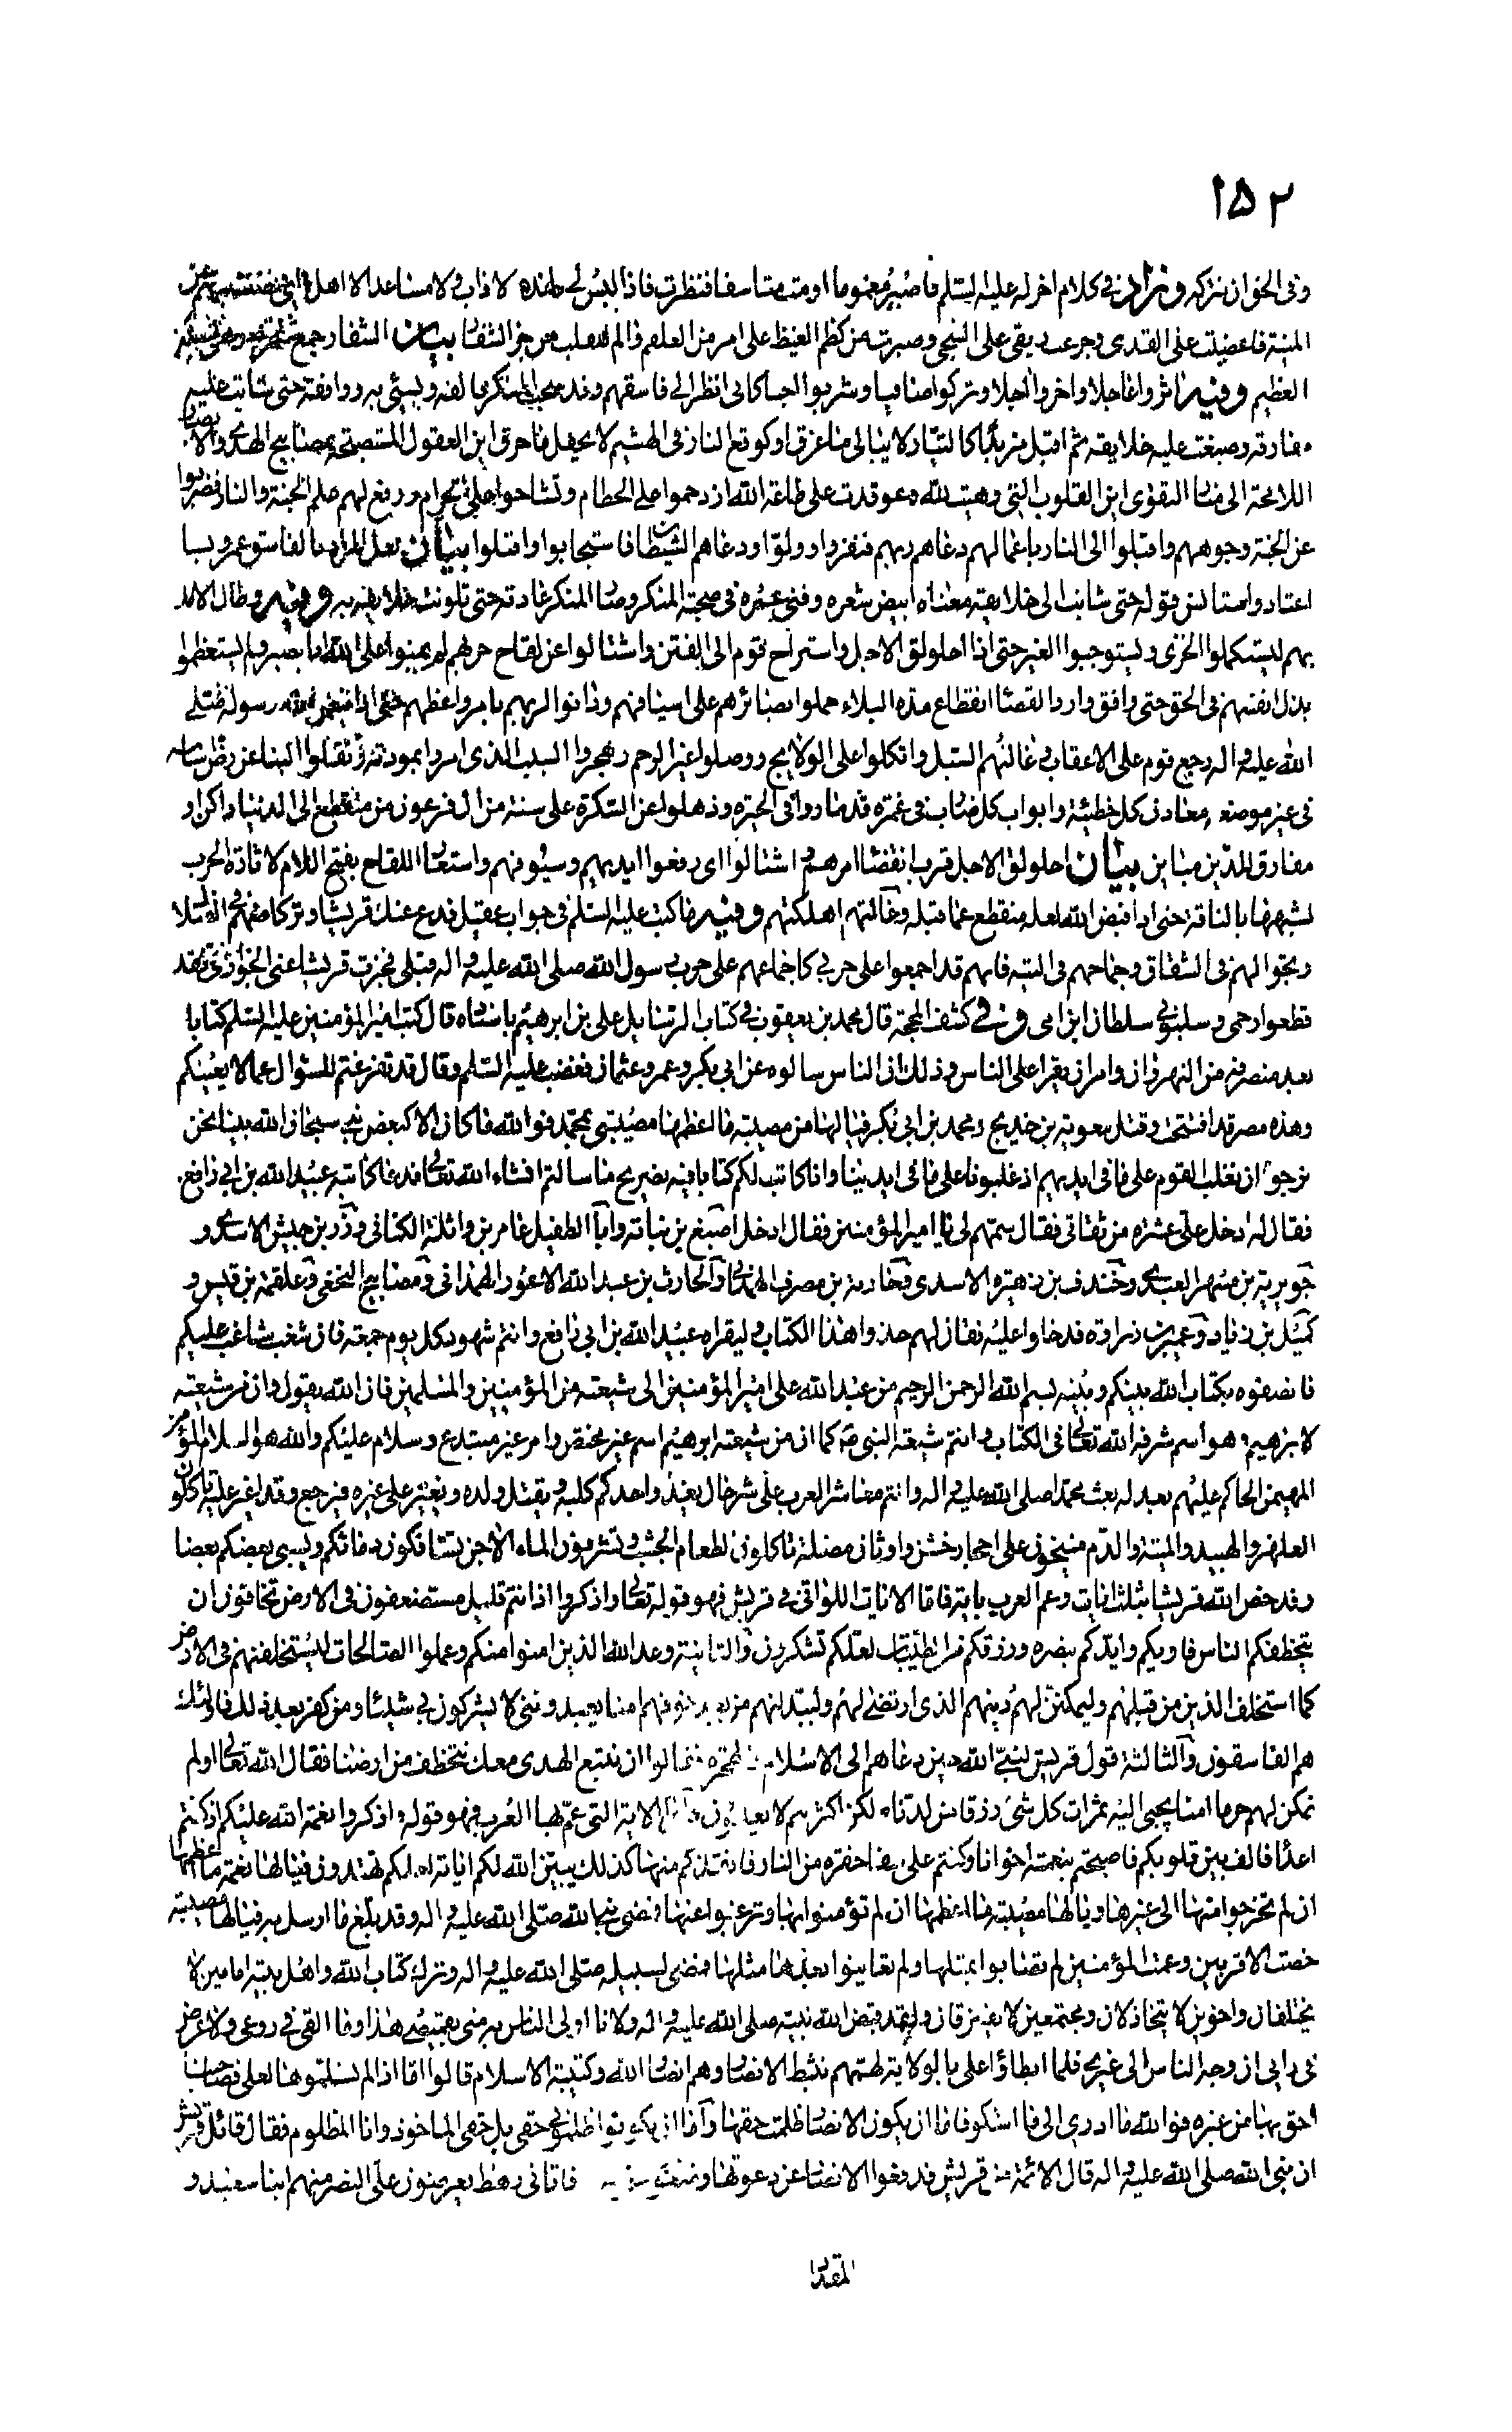 ١٥٢
وفى الحق ان تتركه وزاد فى كلام اخر له عليه السلم فاصبر مغموما او مت متاسفا فنظرت فاذا ليس لى رافد ولا ذاب ولا مساعد الا اهل بيتى فضننت بهم عن
المنية فاغضيت على القذى وجرعت ريقى على الشجى وصبرت من كظم الغيظ على امر من العلقم والم للقلب من حز الشفار بيان الشفار جمع شفرة وهى السكين
العظيم وفيه اثروا عاجلا واخروا اجلا وتركوا صافيا وشربوا اجنا كانى انظر الى فاسقهم وقد صحب المنكر فالفه وبسئ به ووافقه حتى شابت عليه
مفارقه وصبغت عليه خلايقه ثم اقبل مزبدا كالتيار لا يبالى ما غرق او كوقع النار فى الهشيم لا يحفل ما حرق اين العقول المستصبحة بمصابيح الهدى والابصار
اللامحة الى منار التقوى اين القلوب التى وهبت لله وعوقدت على طاعة الله ازدحموا على الحطام وتشاحوا على الحرام ورفع لهم علم الجنة والنار فصرفوا
عن الجنة وجوههم واقبلوا الى النار باعمالهم دعاهم ربهم فنفروا وولوا ودعاهم الشيطان فاستجابوا واقبلوا بيان لعل المراد بالفاسق عمر وبسا
اعتاد واستانس قوله حتى شابت الى خلايقه معناه ابيض شعره وفنى عمره فى صحبة المنكر وصار المنكر عادته حتى تلونت خلايقه به وفيه وطال الامد
بهم ليستكملوا الخزى ويستوجبوا الغير حتى اذا اخلولق الاجل واستراح قوم الى الفتن واشتالوا عن لقاح حربهم لم يمنوا على الله بالصبر ولم يستعظموا
بذل انفسهم فى الحق حتى وافق وارد القضا انقطاع مدة البلاء حملوا بصائرهم على اسيافهم ودانوا لربهم بامر واعظهم حتى اذا قبض الله رسوله صلى
الله عليه واله رجع قوم على الاعقاب وغالتهم السبل واتكلوا على الولايج ووصلوا غير الرحم وهجروا السبب الذى امروا بمودته ونقلوا البناء عن رص اساسه
فبنوه فى غير موضعه معادن كل خطيئة وابواب كل ضارب فى غمرة قد ماروا فى الحيرة وذهلوا عن السكرة على سنة من ال فرعون من منقطع الى الدنيا راكن او
مفارق للدين مباين بيان اخلولق الاجل قرب انقضا امرهم اشتالوا اى رفعوا ايديهم وسيوفهم واستعار اللقاح بفتح اللام لاثارة الحرب
لشبهها بالناقة حتى اذا قبض الله لعله منقطع عما قبله وغالتهم اهلكتهم وفيه فيما كتب عليه السلم فى جواب عقيل فدع عنك قريشا وتركاضهم فى الضلال
وتجوالهم فى الشقاق وجماحهم فى التيه فانهم قد اجمعوا على حربى كاجماعهم على حرب رسول الله صلى الله عليه واله قبلى فجزت قريشا عنى الجوازى فقد
قطعوا رحمى وسلبونى سلطان ابن امى وفى كشف المحجة قال محمد بن يعقوب فى كتاب الرسايل على بن ابرهيم باسناده قال كتب امير المؤمنين عليه السلم كتابا
بعد منصرفه من النهروان وامر ان يقرا على الناس وذلك ان الناس سالوه عن ابى بكر وعمر وعثمان فغضب عليه السلم وقال قد تفرغتم للسؤال عما لا يعنيكم
وهذه مصر قد افتتحت وقتل معوية بن خديج ومحمد بن ابى بكر فيا لها من مصيبة ما اعظمها مصيبتى بمحمد فوالله ما كان الا كبعض بنى سبحان الله بينا نحن
نرجو ان نغلب القوم على ما فى ايديهم اذ غلبونا على ما فى ايدينا وانا كاتب لكم كتابا فيه تصريح ما سالتم انشاء الله تعالى فدعا كاتبه عبيد الله بن ابى رافع
فقال له ادخل على عشرة من ثقاتى فقال سمهم لى يا امير المؤمنين فقال ادخل اصبغ بن نباته وابا الطفيل عامر بن واثلة الكنانى وزر بن حبيش الاسدى و
جويرية بن مسهر العبدى وخندف بن زهير الاسدى وحارثة بن مصرف الهمدانى والحارث بن عبد الله الاعور الهمدانى ومصابيح النخعى وعلقمة بن قيس و
كميل بن زياد وعمير بن زرارة فدخلوا عليه فقال لهم خذوا هذا الكتاب وليقراه عبيد الله بن ابى رافع وانتم شهود كل يوم جمعة فان شغب شاغب عليكم
فانصفوه بكتاب الله بينكم وبينه بسم الله الرحمن الرحيم من عبد الله على امير المؤمنين الى شيعته من المؤمنين والمسلمين فان الله يقول وان من شيعته
لابرهيم وهو اسم شرفه الله تعالى فى الكتاب وانتم شيعة النبى ص كما ان من شيعته ابرهيم اسم غير مختص وامر غير مبتدع وسلام عليكم والله هو السلام المؤمن
المهيمن الحاكم عليهم بعدله بعث محمدا صلى الله عليه واله وانتم معاشر العرب على شر حال يغذوا احدكم كلبه ويقتل ولده ويغير على غيره فيرجع وقد اغير عليه تاكلون
العلهز والهبيد والميتة والدم منيخون على احجار خشن واوثان مضلة تاكلون الطعام الجشب وتشربون الماء الاجن تسافكون دماءكم ويسبى بعضكم بعضا
وقد خص الله قريشا بثلث ايات وعم العرب باية فاما الايات اللواتى فى قريش فهو قوله تعالى واذكروا اذ انتم قليل مستضعفون فى الارض تخافون ان
يتخطفكم الناس فاويكم وايدكم بنصره ورزقكم من الطيبات لعلكم تشكرون والثانية وعد الله الذين امنوا منكم وعملوا الصالحات ليستخلفنهم فى الارض
كما استخلف الذين من قبلهم وليمكنن لهم دينهم الذى ارتضى لهم وليبدلنهم من بعد خوفهم امنا يعبدوننى لا يشركون بى شيئا ومن كفر بعد ذلك فاولئك
هم الفاسقون والثالثة قول قريش لنبى الله حين دعاهم الى الاسلام والهجرة فقالوا ان نتبع الهدى معك نتخطف من ارضنا فقال الله تعالى اولم
نمكن لهم حرما امنا يجبى اليه ثمرات كل شئ رزقا من لدنا ولكن اكثرهم لا يعلمون واما الاية التى عم بها العرب فهو قوله واذكروا نعمة الله عليكم اذ كنتم
اعداء فالف بين قلوبكم فاصبحتم بنعمته اخوانا وكنتم على شفا حفرة من النار فانقذكم منها كذلك يبين الله لكم اياته لعلكم تهتدون فيا لها نعمة ما اعظمها
ان لم تخرجوا منها الى غيرها ويا لها مصيبة ما اعظمها ان لم تؤمنوا بها وترغبوا عنها فمضى نبى الله صلى الله عليه واله وقد بلغ ما ارسل به فيا لها مصيبة
خصت الاقربين وعمت المؤمنين لم تصابوا بمثلها ولم تعاينوا بعدها مثلها فمضى لسبيله صلى الله عليه واله وترك كتاب الله واهل بيته امامين لا
يختلفان واخوين لا يتخاذلان ومجتمعين لا يفترقان ولقد قبض الله نبيه صلى الله عليه واله ولانا اولى الناس به منى بقميصى هذا وما القى فى روعى ولا عرض
فى رايى ان وجه الناس الى غيرى فلما ابطاؤا على بالولاية لهممهم وتثبط الانصار وهم انصار الله وكتيبة الاسلام قالوا اما اذا لم تسلموها لعلى فصاحبنا
احق بها من غيره فوالله ما ادرى الى من اشكو فاما ان يكون الانصار ظلمت حقها واما ان يكونوا ظلمونى حقى بل حقى الماخوذ وانا المظلوم فقال قائل قريش
ان نبى الله صلى الله عليه واله قال الائمة من قريش فدفعوا الانصار عن دعوتها ومنعونى فاتانى رهط يعرضون على النصر منهم ابنا سعيد و
المقداد